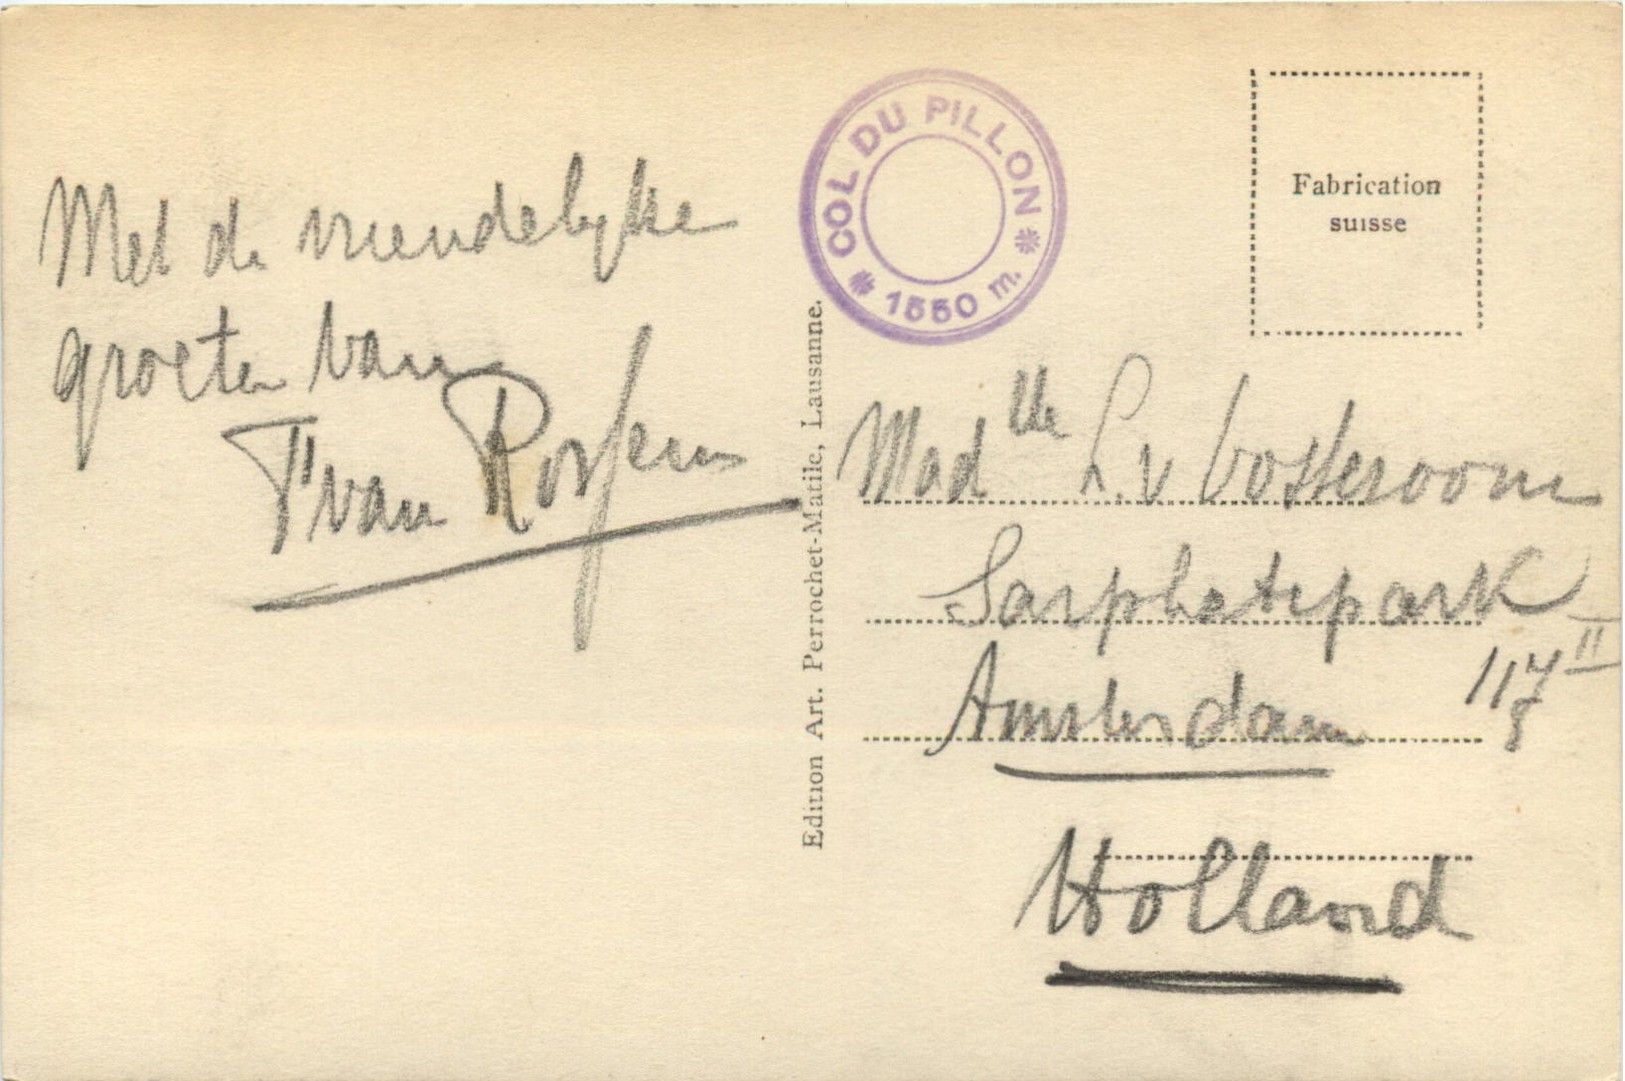 Met de vriendelyke
groeten van
T van
COL DU PILLON
* 1550 m. *
Fabrication
suisse
Edition Art. Perrochet-Matile, Lausanne.
Madlle L. v
Sarphatipark
117 II
Amsterdam
Holland